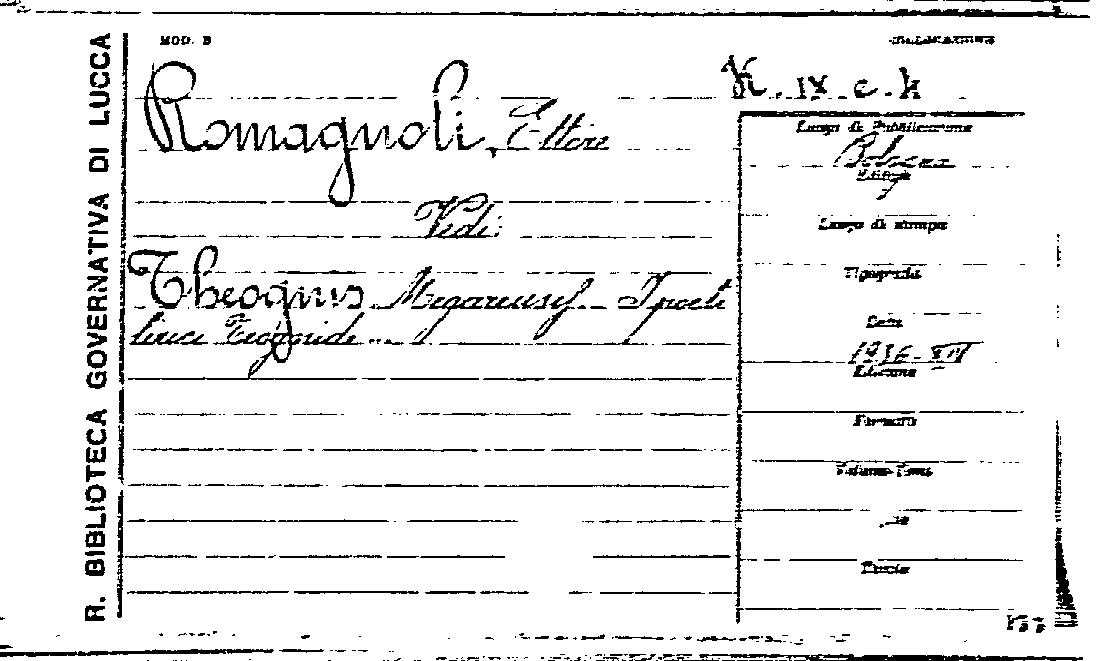 R. BIBLIOTECA GOVERNATIVA DI LUCCA
MOD. B
COLLOCAZIONE
K. IX. c. k
Romagnoli, Ettore
Vedi:
Theognis Megarensis. I poeti
lirici Teognide...
Luogo di Pubblicazione
Bologna
Editore
Luogo di stampa
Tipografia
Data
1936-XIV
Edizione
Formato
Volume-Tomi